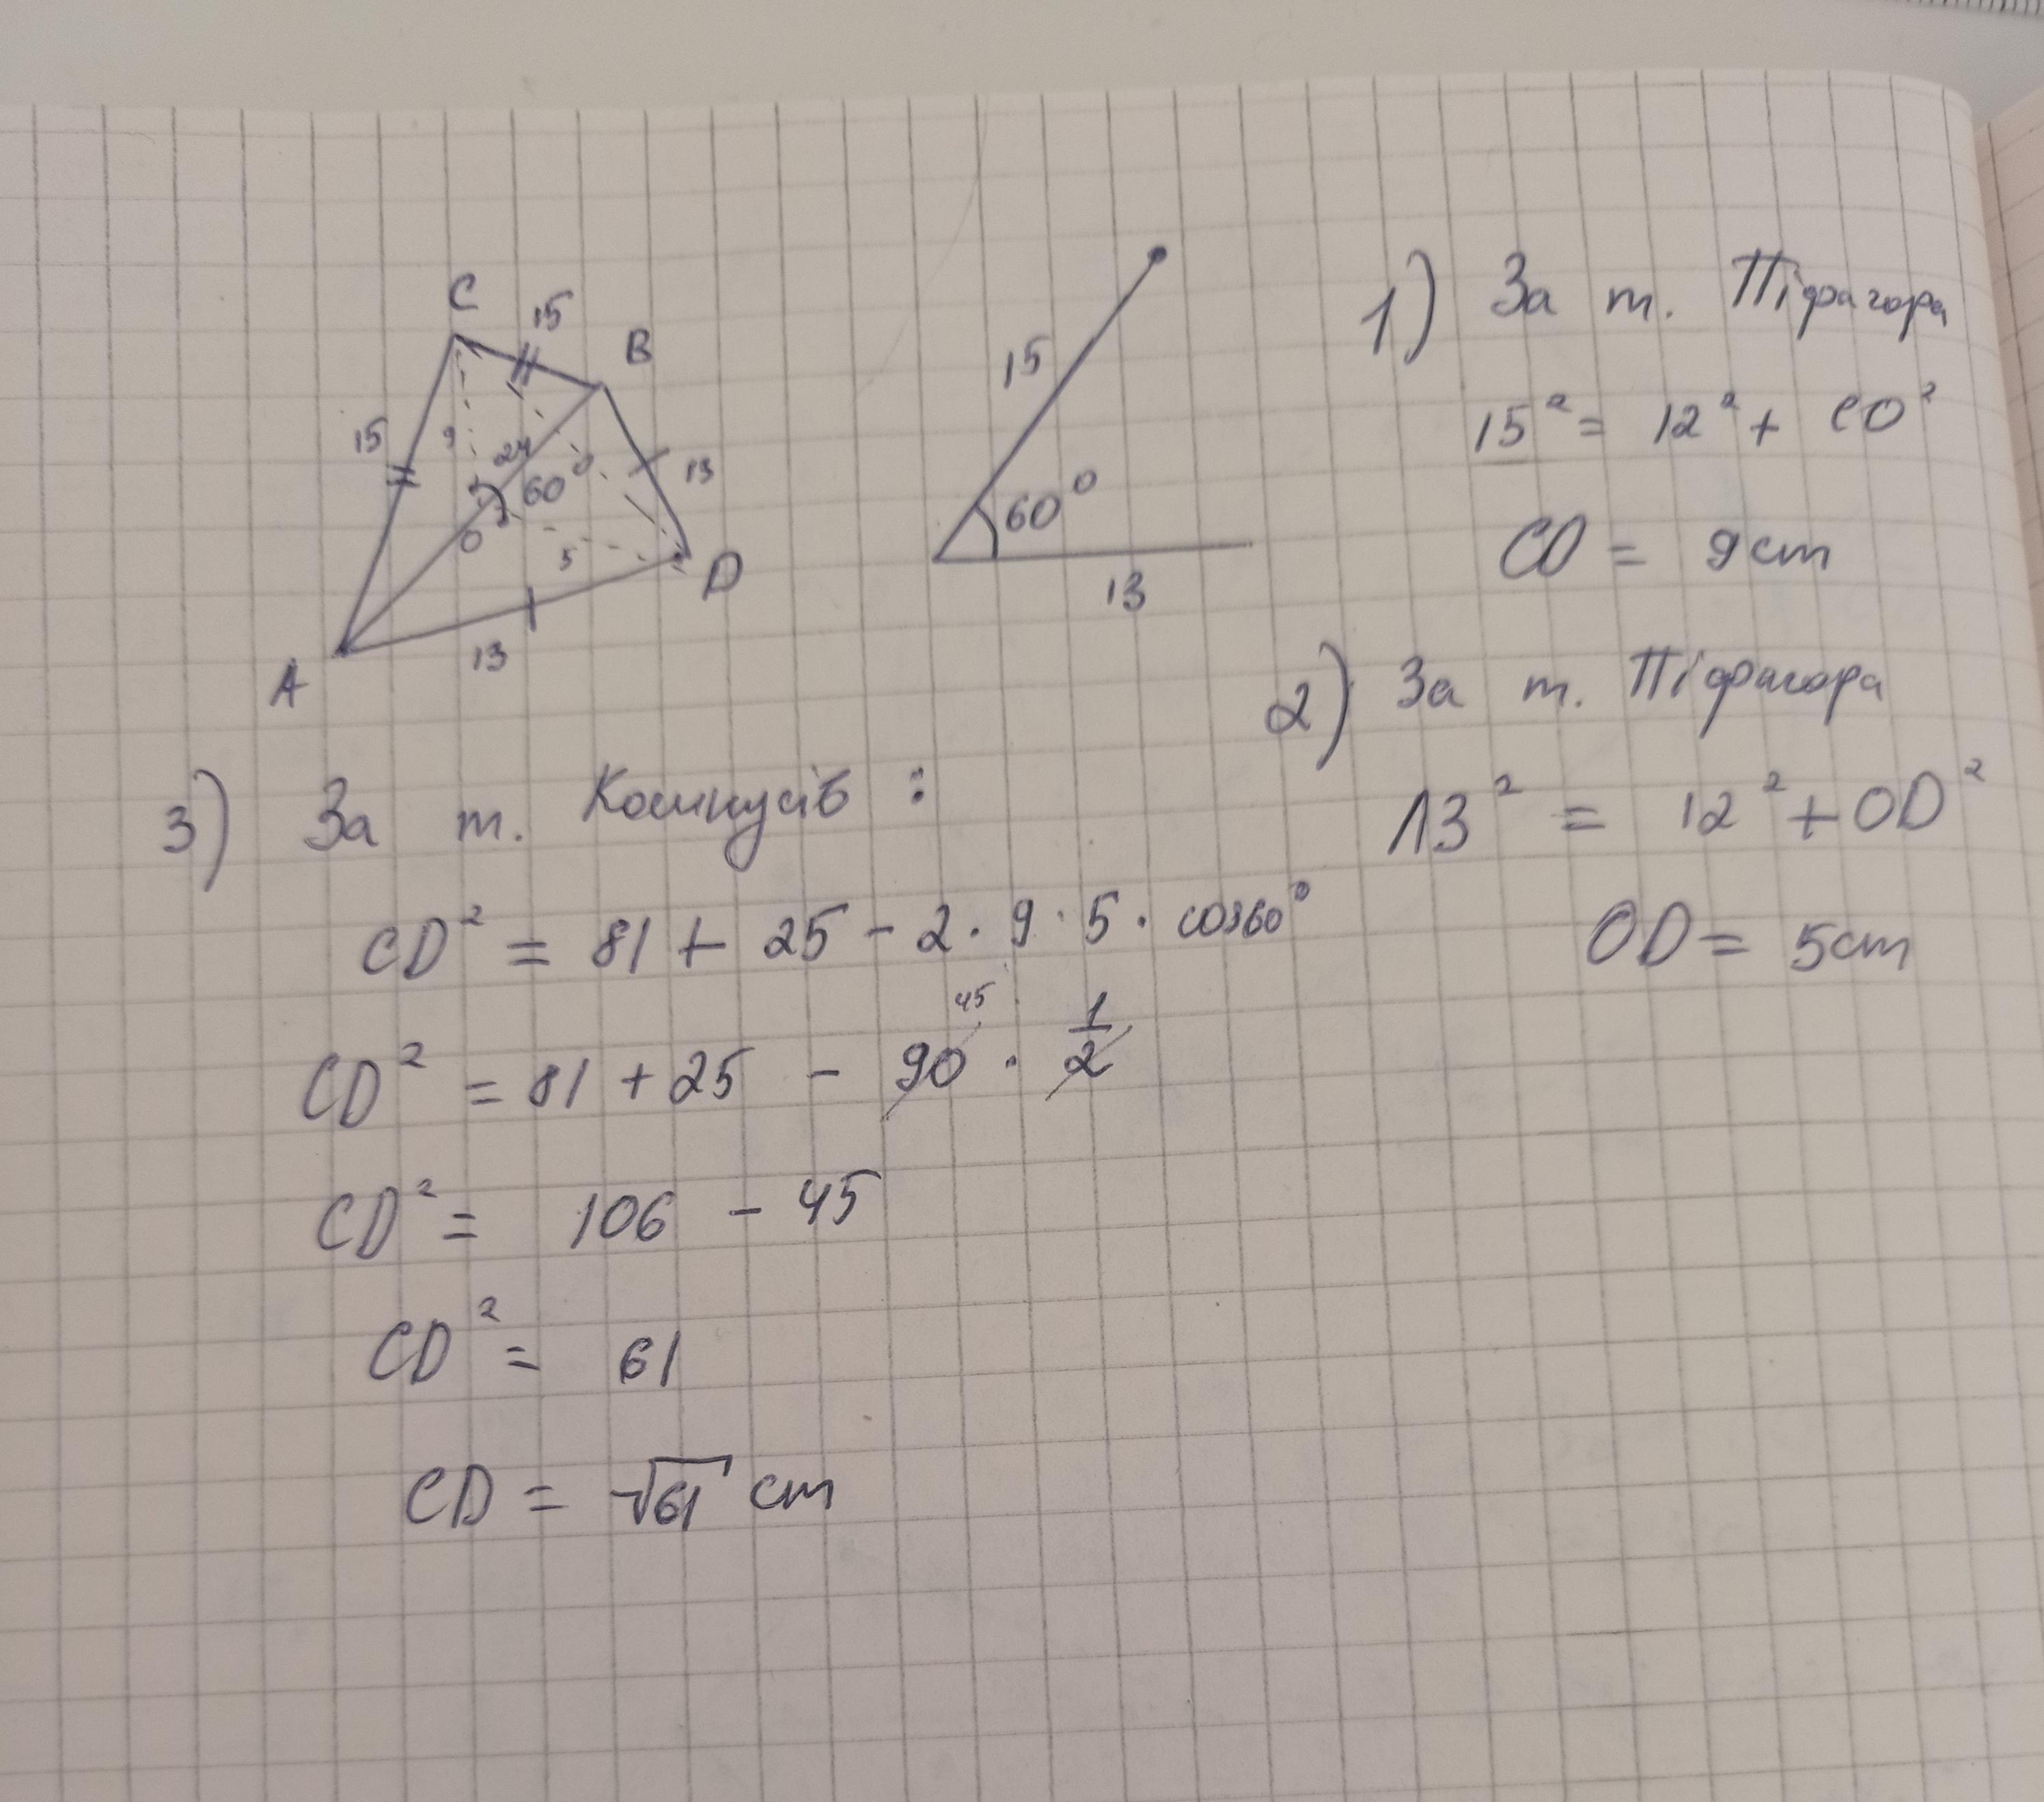 C
15
B
15
9
24
60°
13
O
5
D
A
13
15
60°
13
1) За т. Піфагора
15² = 12² + CO²
CO = 9 cm
2) За т. Піфагора
13² = 12² + OD²
OD = 5 cm
3) За т. Косинусів :
CD² = 81 + 25 - 2 · 9 · 5 · cos60°
45
CD² = 81 + 25 - 90 · 1/2
CD² = 106 - 45
CD² = 61
CD = √61 cm